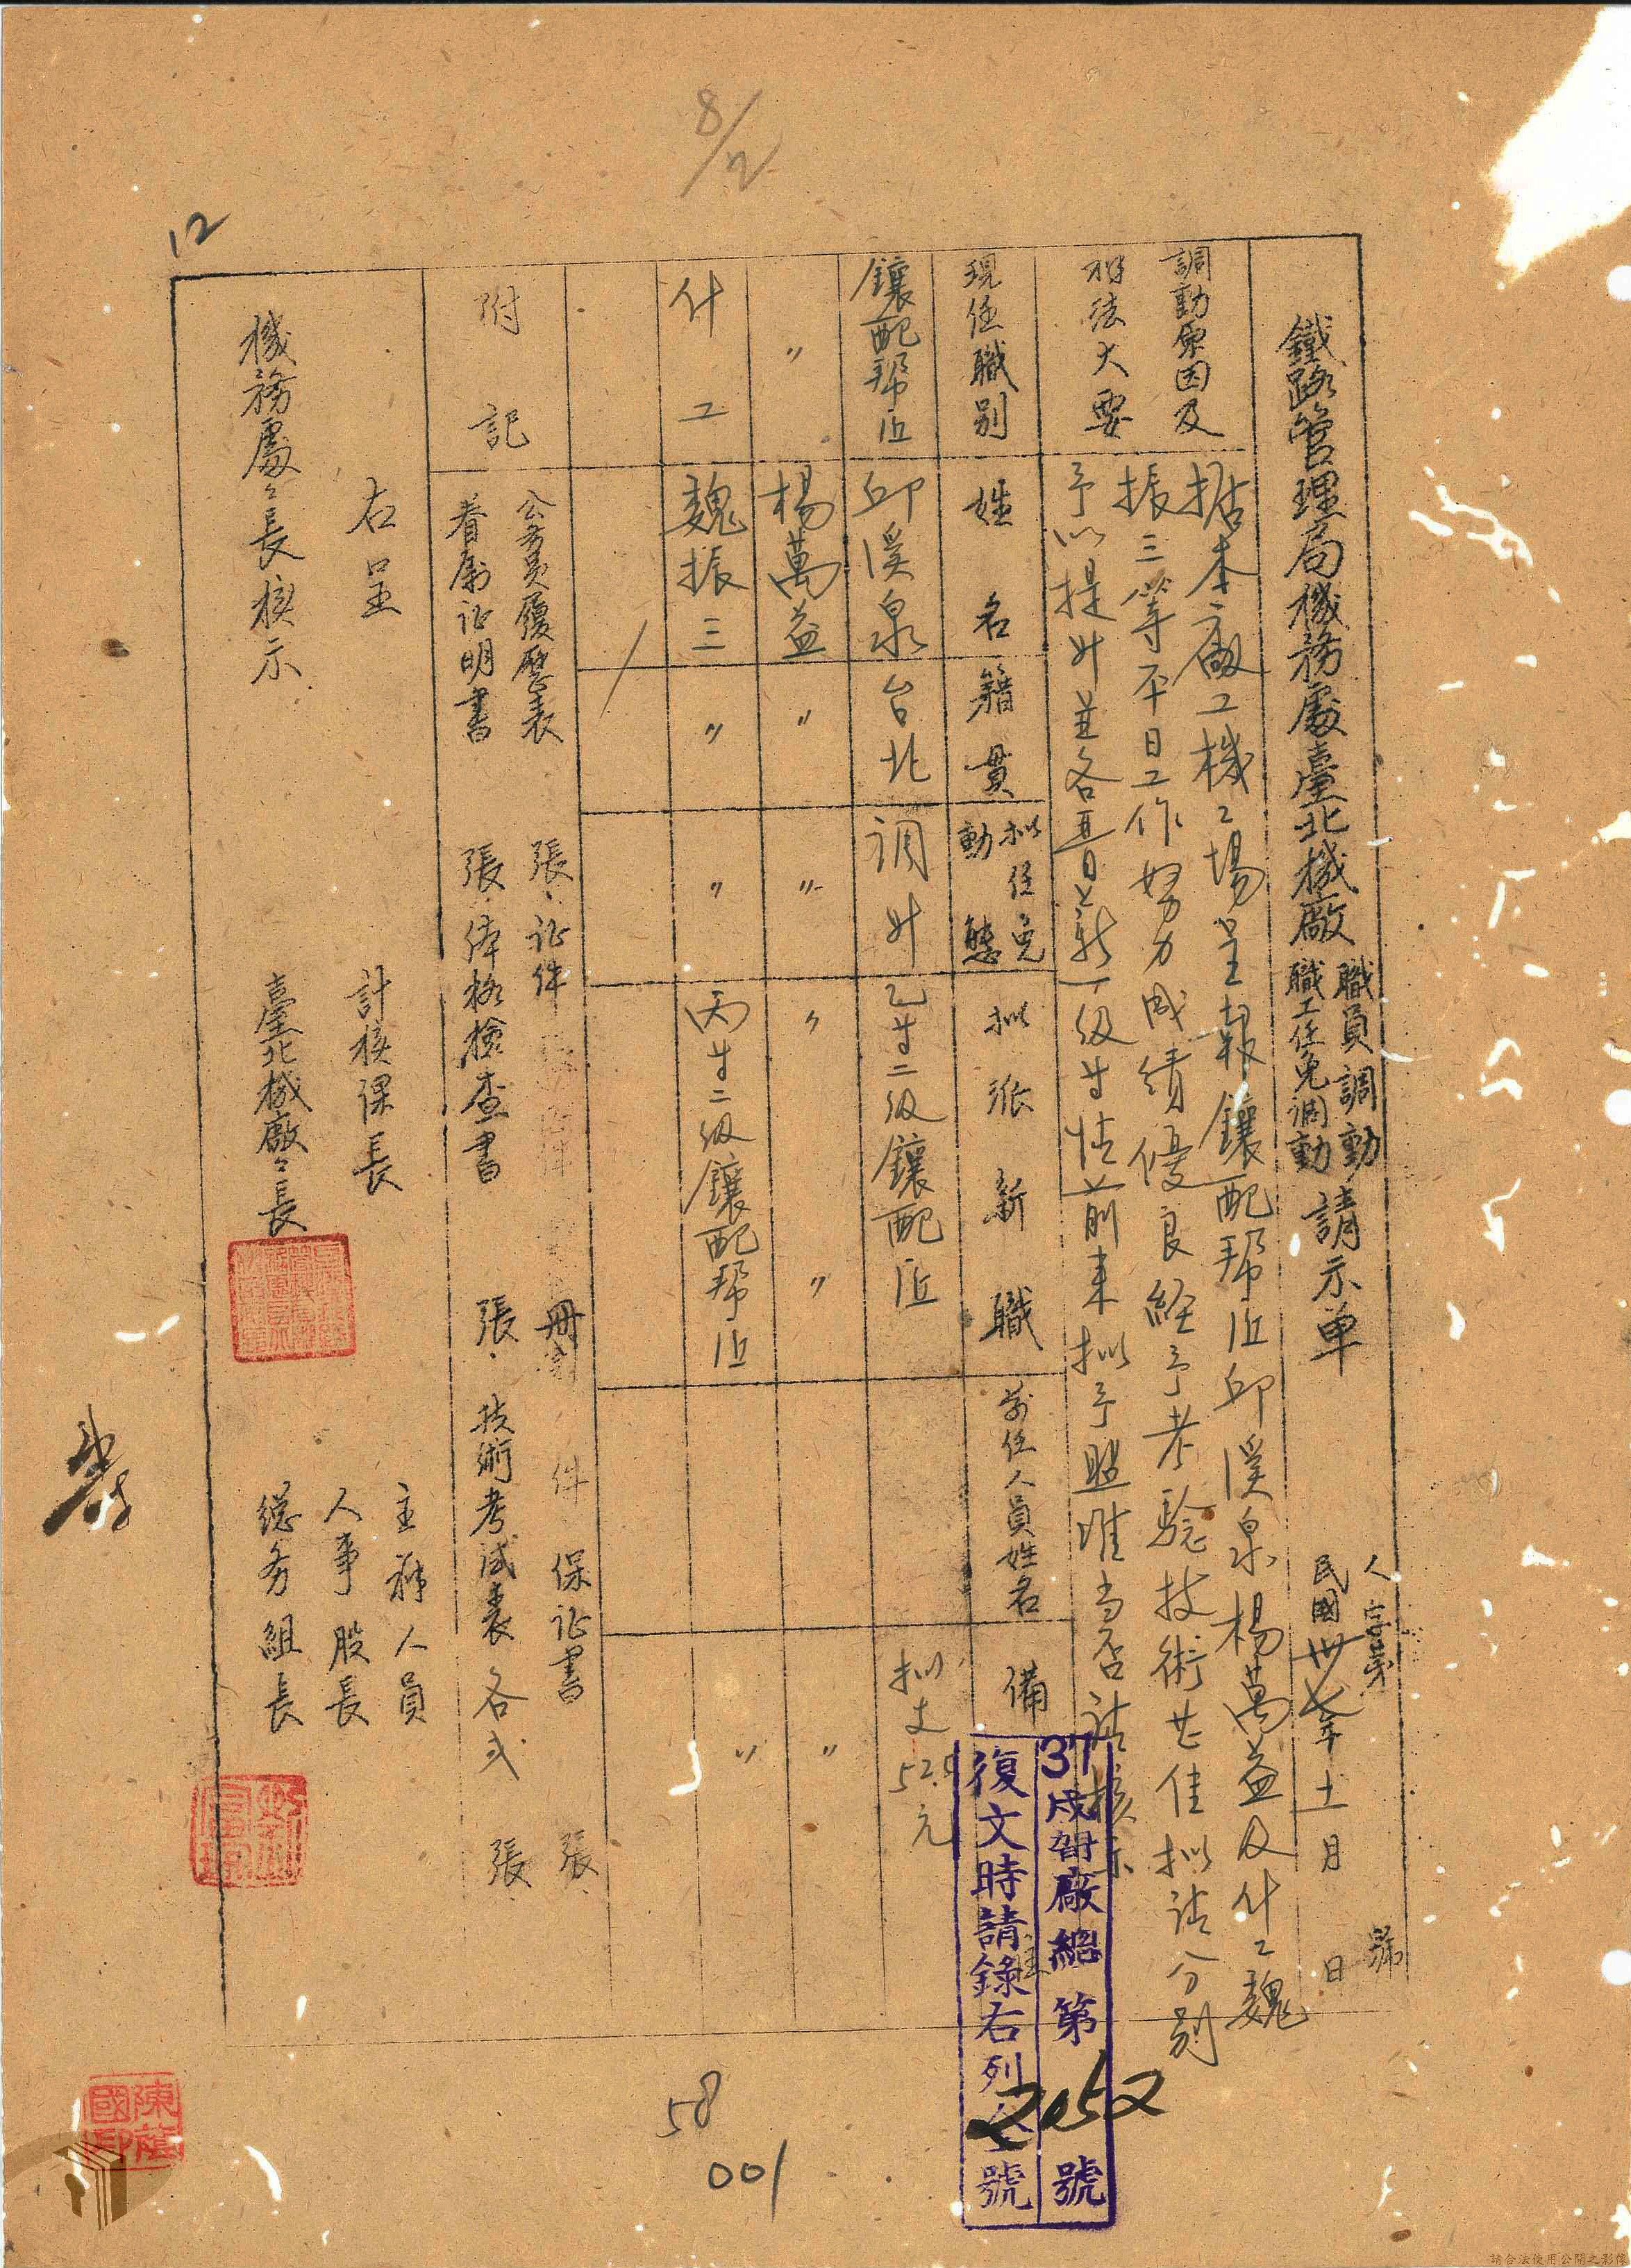 8/2
12
鐵路管理局機務處臺北機廠
職員調動
職工任免調動
請示单
人字第 號
民國卅七年十一月 日
調動原因及
辦法大要
据本廠工機工場呈報鑲配帮匠邱溪泉楊萬益及什工魏
振三等平日工作努力成績優良経予考驗技術尚佳拟請分别
予以提升並各晋日薪一級等情前来拟予照准当否請核示
現任職别
姓名
籍貫
拟任免
動態
拟派新職
前任人員姓名
備
鑲配帮匠 邱溪泉 台北 调升 乙等二級鑲配匠 拟支52.0元
〃 楊萬益 〃 〃 〃 〃 〃
什工 魏振三 〃 〃 丙等二級鑲配帮匠 〃
附記
公务員履歷表 張、证件 件 保证書 張、
眷屬证明書 張、体格檢查書 張、技術考试表各弍張、
右呈
機務處々長核示
計核课長
臺北機廠々長
主辦人員
人事股長
総务組長
37戍 廠總第2052號
復文時請錄右列 號
陳
國印
58
001
請合法使用公開之影像